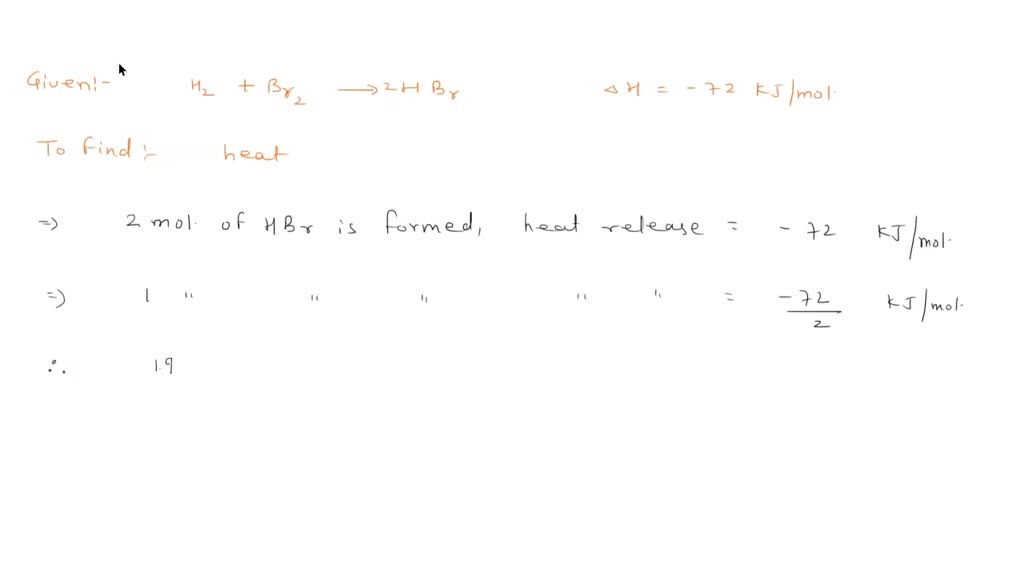 Given:- H2 + Br2 → 2HBr ΔH = -72 KJ/mol.
To find:- heat
=) 2 mol. of HBr is formed, heat release = -72 KJ/mol.
=) 1 " " " " " = -72/2 KJ/mol.
∴ 1.9